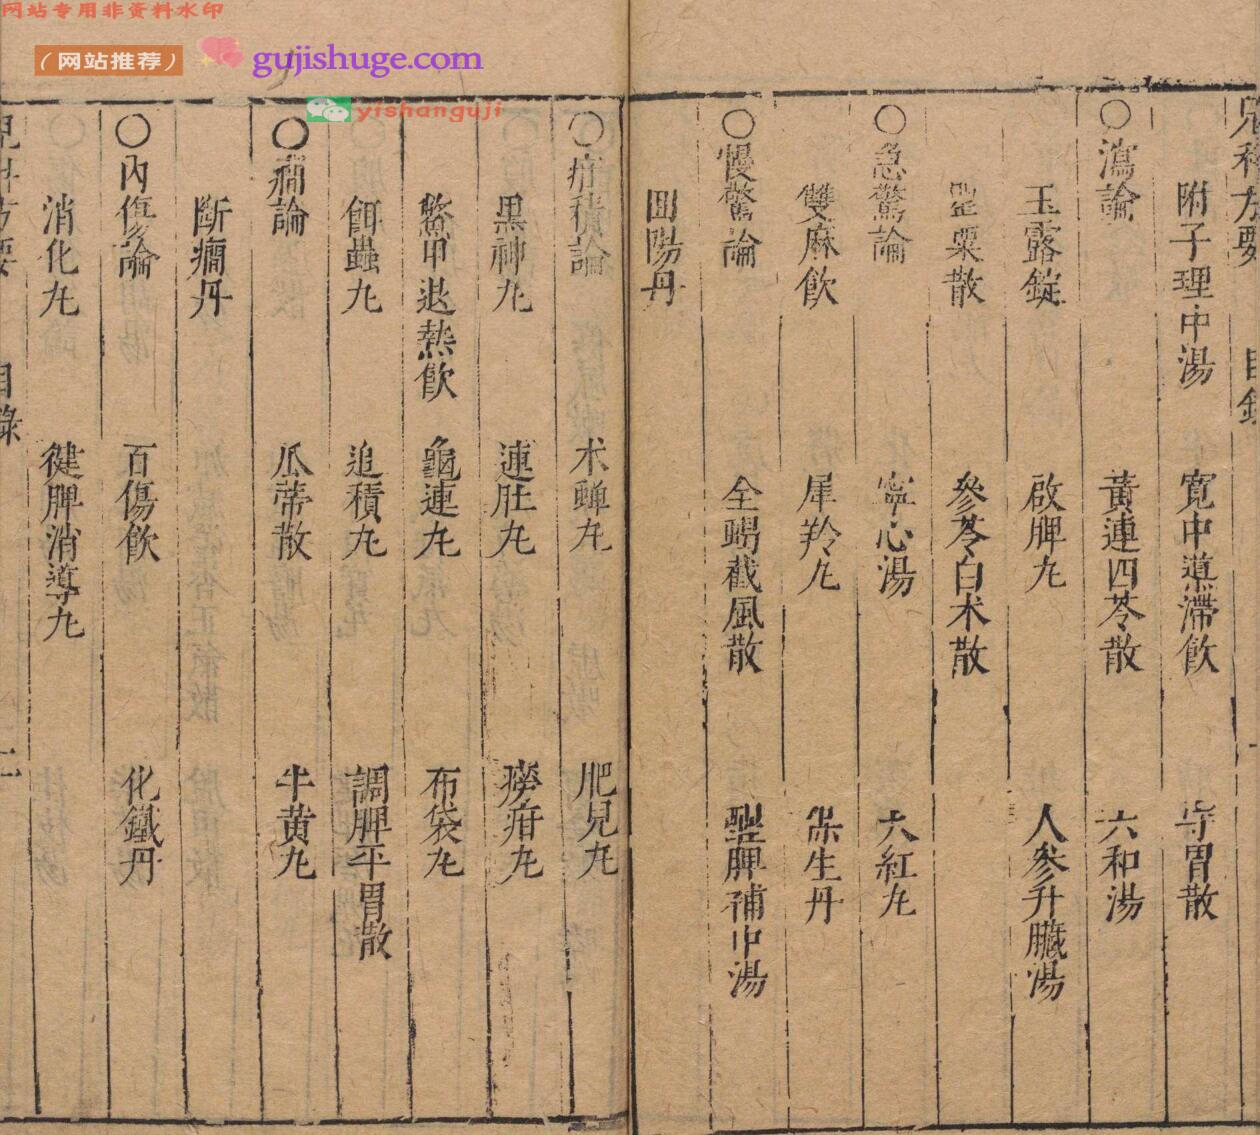 网站专用非资料水印
（网站推荐）
gujishuge.com
yishanguji
兒科方要 目錄
附子理中湯 寬中導滯飲 守胃散
○瀉論 黃連四苓散 六和湯
玉露錠 啟脾丸 人參升臟湯
罌粟散 參苓白朮散
○急驚論 寧心湯 大紅丸
雙麻飲 犀羚丸 保生丹
○慢驚論 全蝎截風散 醒脾補中湯
回陽丹
○疳積論 朮蟬丸 肥兒丸
黑神丸 連肚丸 癆疳丸
鱉甲退熱飲 龜連丸 布袋丸
餌蟲丸 追積丸 調脾平胃散
○癇論 瓜蒂散 牛黃丸
斷癇丹
○內傷論 百傷飲 化鐵丹
消化丸 健脾消導丸
兒科方要 目錄 二